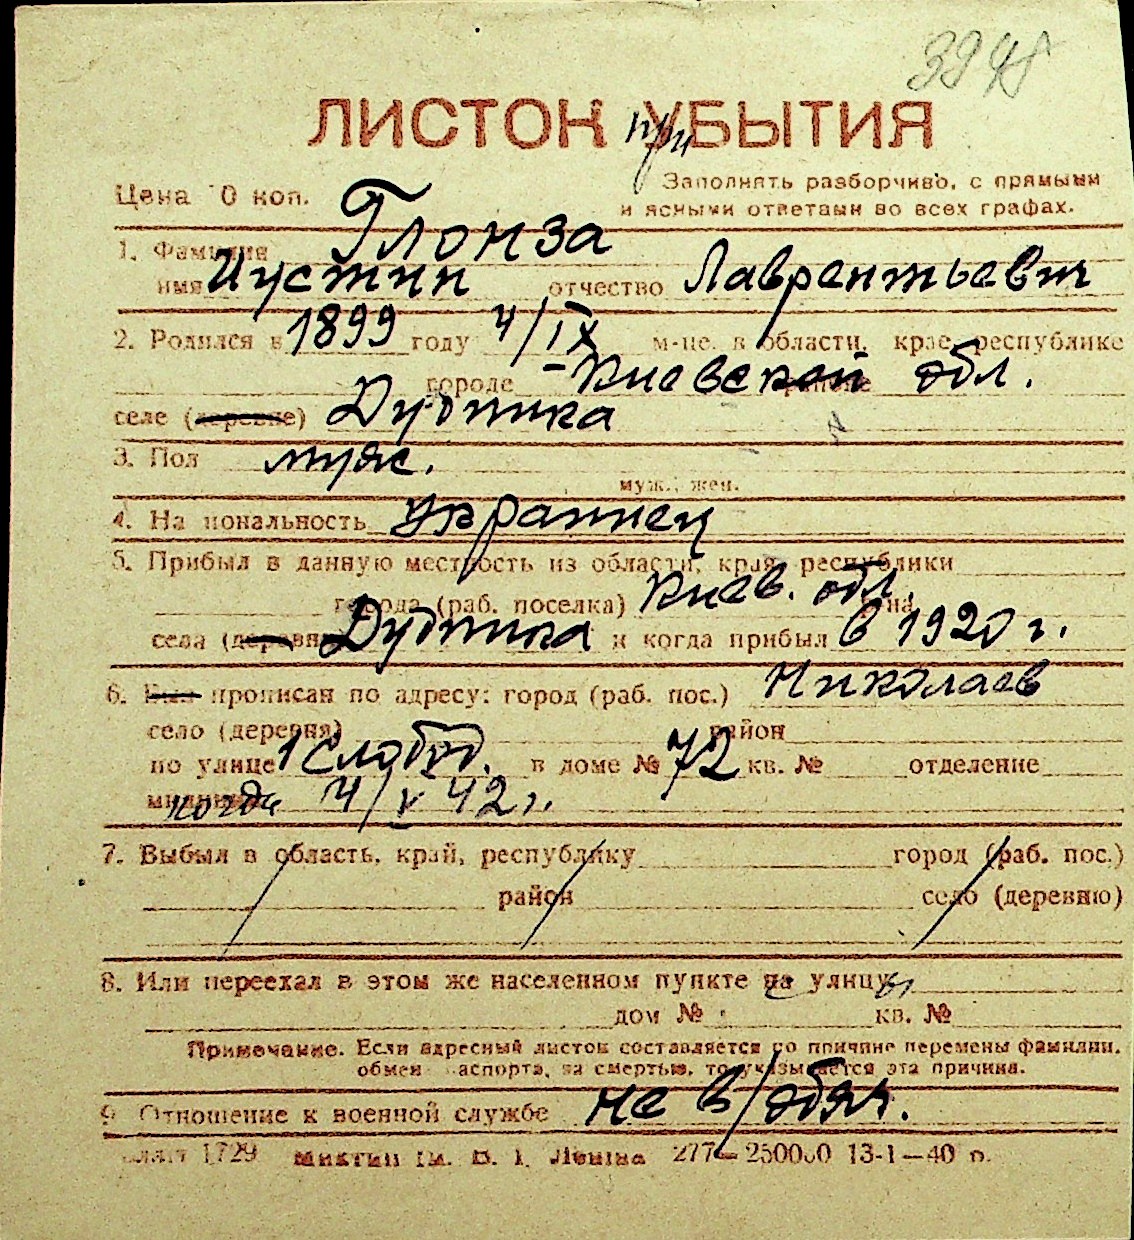 3948
ЛИСТОК при УБЫТИЯ
Цена 10 коп.
Заполнять разборчиво, с прямыми
и ясными ответами во всех графах.
1. Фамилия Глонза
имя Иустин отчество Лаврентьевич
2. Родился в 1899 году 4/IX м-це. в области, крае, республике
городе - Киевской обл.
селе (деревне) Дудпика
3. Пол муж.
муж., жен.
4. Национальность Украинец
5. Прибыл в данную местность из области, края, республики
города (раб. поселка) Киев. обл. на
села (деревни) Дудпика и когда прибыл в 1920 г.
6. Был прописан по адресу: город (раб. пос.) Николаев
село (деревня) район
по улице 1 Слобод. в доме № 72 кв. № отделение
милиции когда 4/V 42 г.
7. Выбыл в область, край, республику город (раб. пос.)
район село (деревню)
8. Или переехал в этом же населенном пункте на улицу
дом № кв. №
Примечание. Если адресный листок составляется по причине перемены фамилии,
обмен паспорта, за смертью, то указывается эта причина.
9. Отношение к военной службе не в/обяз.
1729 277—250000 13-1—40 г.